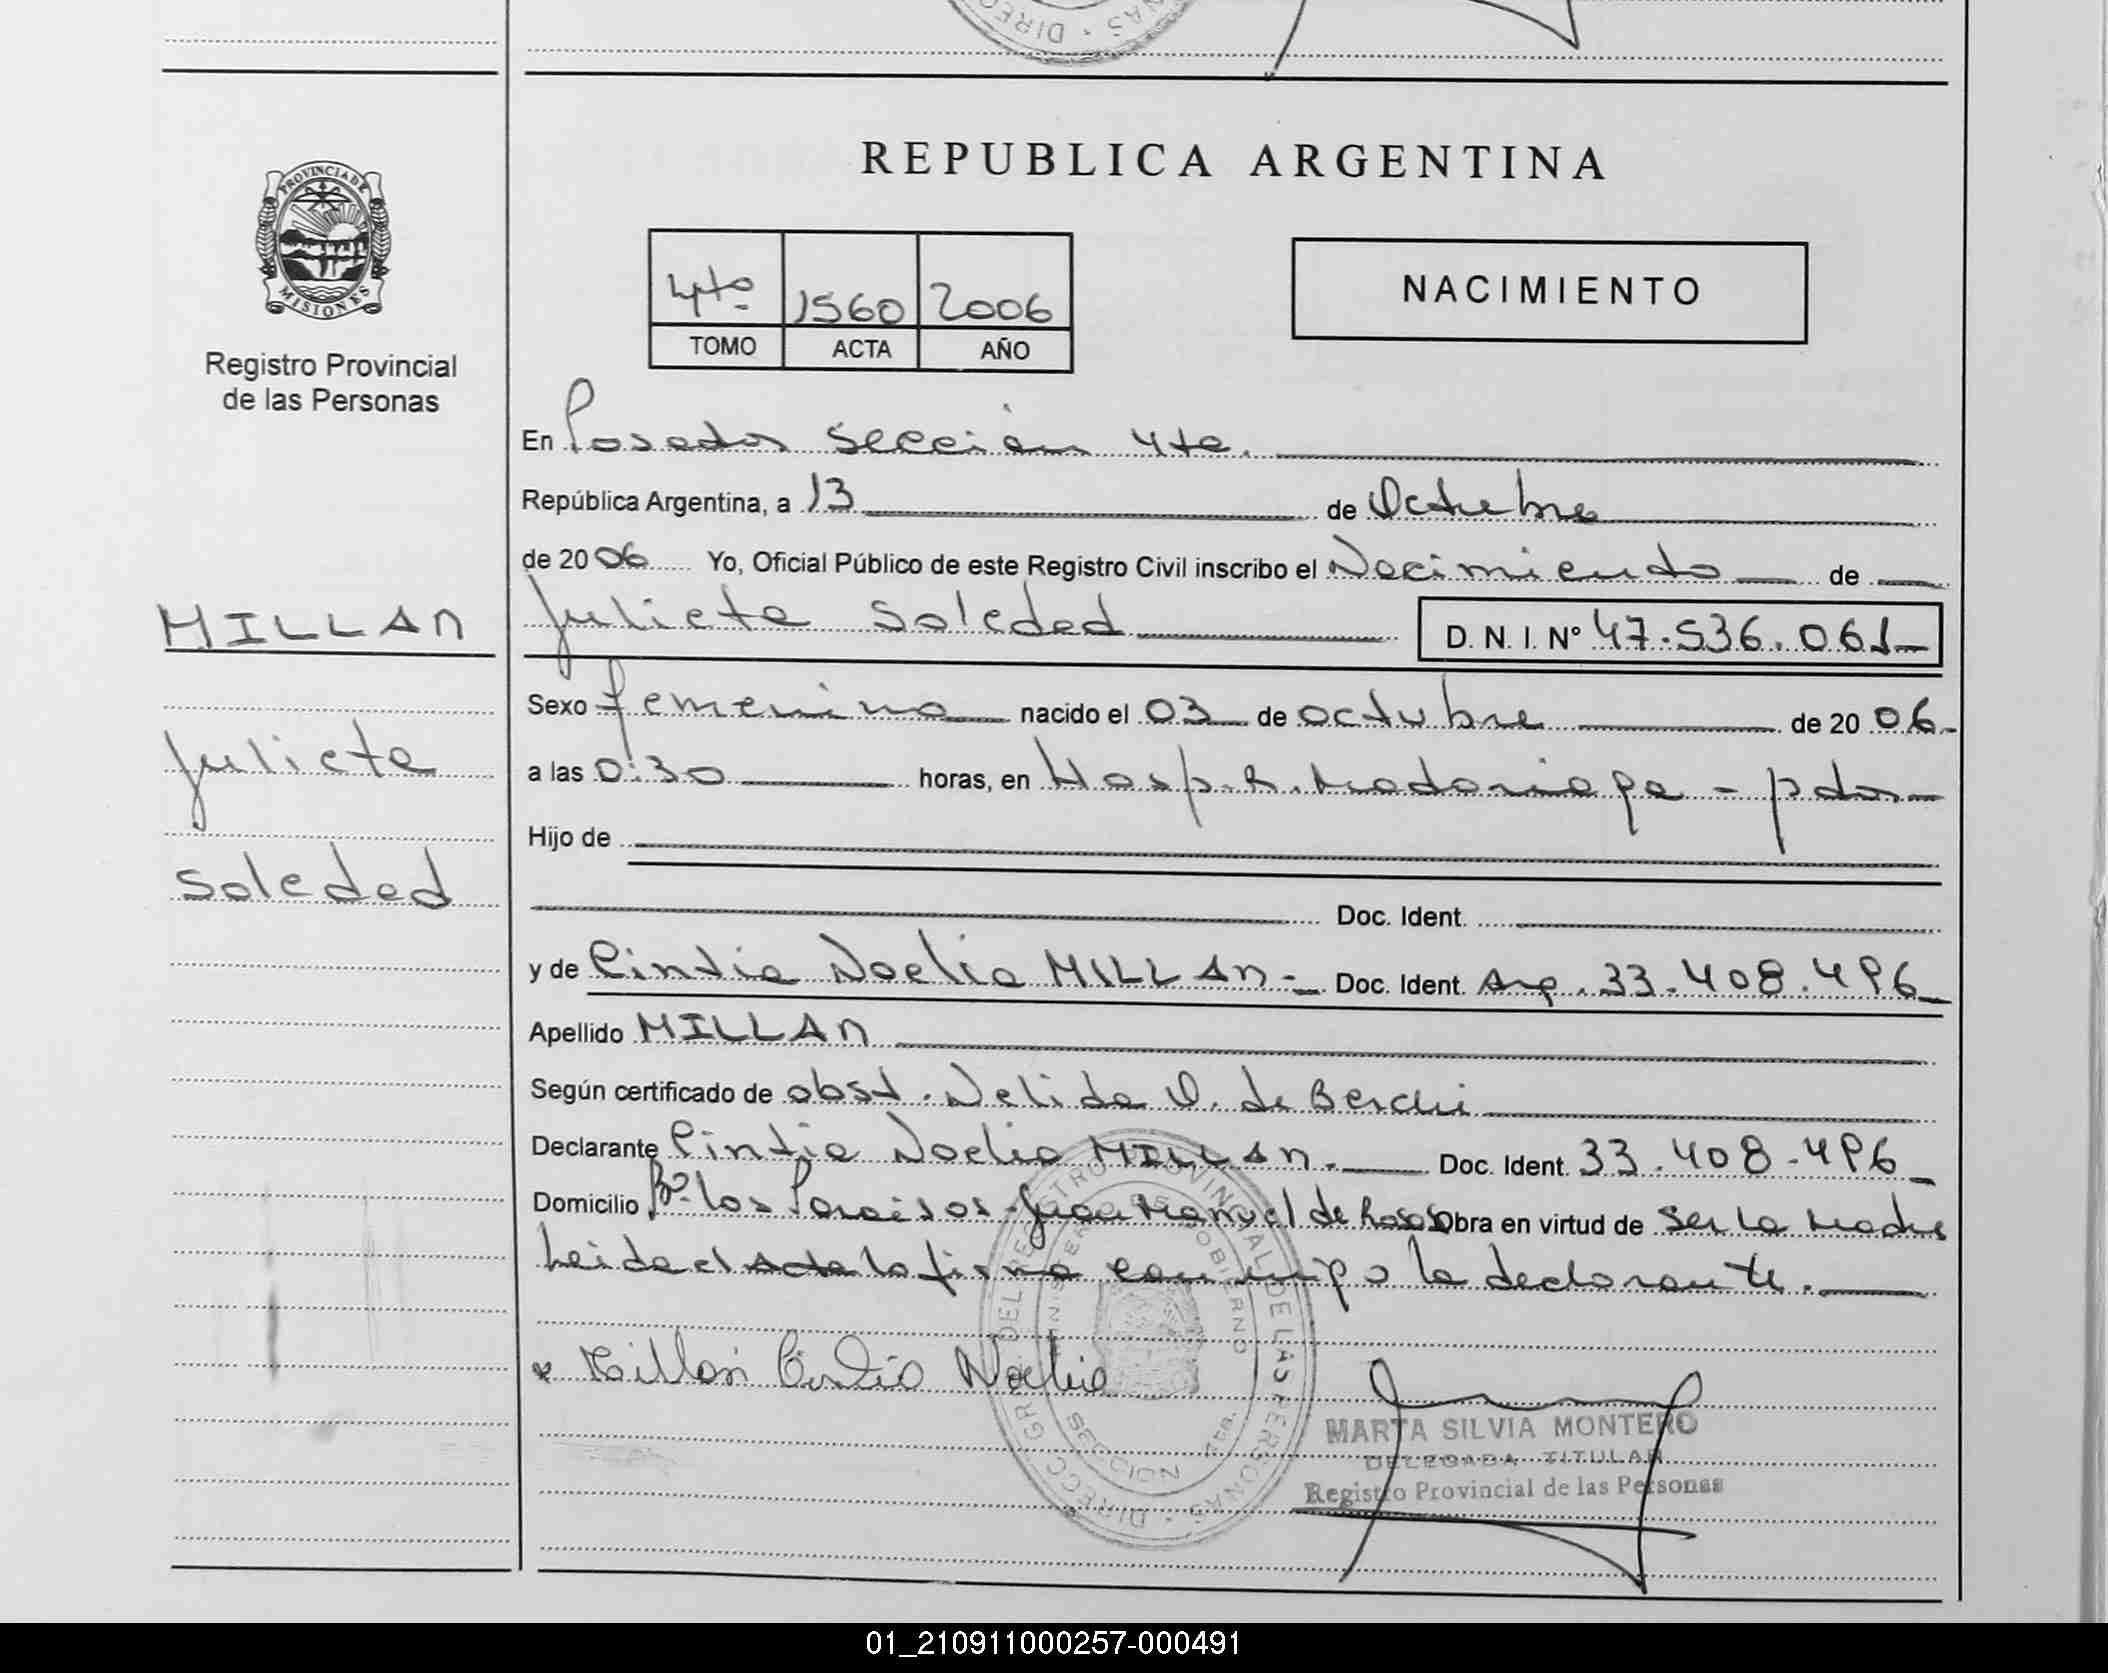 REPUBLICA ARGENTINA
PROVINCIA DE MISIONES
Registro Provincial
de las Personas
4to 1560 2006
TOMO ACTA AÑO
NACIMIENTO
En Posadas sección 4ta.
República Argentina, a 13 de Octubre
de 2006 Yo, Oficial Público de este Registro Civil inscribo el Nacimiento de
Julieta Soledad D. N. I. Nº 47.536.061
MILLAN
Julieta
Soledad
Sexo femenino nacido el 03 de octubre de 2006
a las 0:30 horas, en Hosp. R. Madariaga - pdas
Hijo de
Doc. Ident.
y de Cintia Noelia MILLAN Doc. Ident. Arg. 33.408.496
Apellido MILLAN
Según certificado de obst. Nelida O. de
Declarante Cintia Noelia MILLAN. Doc. Ident. 33.408.496
Domicilio Bº los Paraisos - Juan Manuel de Rosas Obra en virtud de ser la madre
Leida el Acta la firma conmigo la declarante.
x Millan Cintia Noelia
DIRECC GRAL DEL REGISTRO PROVINCIAL DE LAS PERSONAS
MINISTERIO DE GOBIERNO
SECCION 4ta.
MARTA SILVIA MONTERO
DELEGADA TITULAR
Registro Provincial de las Personas
01_210911000257-000491